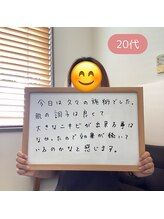 20代
今日は2回の施術でした。
肌の調子は良くて
大きなニキビが出来る事は
なかったので効果が続いて
いるのかなと感じます。